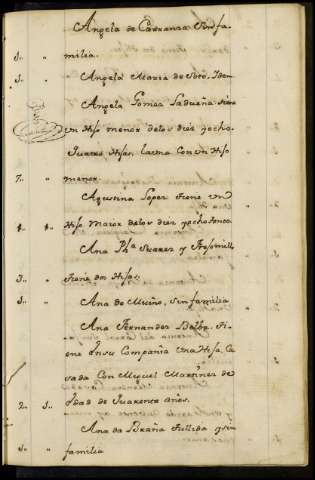 Angela de Carranza Sin fa
1„ „ milia.
1„ „ Angela Maria de Soto, Idem
Angela Gomez La dueña tiene
un Hijo menor de los diez y ocho
quatro Hijas, la una Con un Hijo
7„ „ menor.
Agustina Lopez tiene un
1„ 1„ Hijo maior de los diez y ocho años
Ana Ph.a Suarez y
3„ „ tiene dos Hijas
1„ „ Ana de Muiño, sin familia
Ana Fernandez Balba, ti
ene En su Compañia Una Hija, Ca
sada Con Miguel Martinez de
2„ 1„ Edad de quarenta años.
Ana da Braña Tullida y sin
1„ „ familia